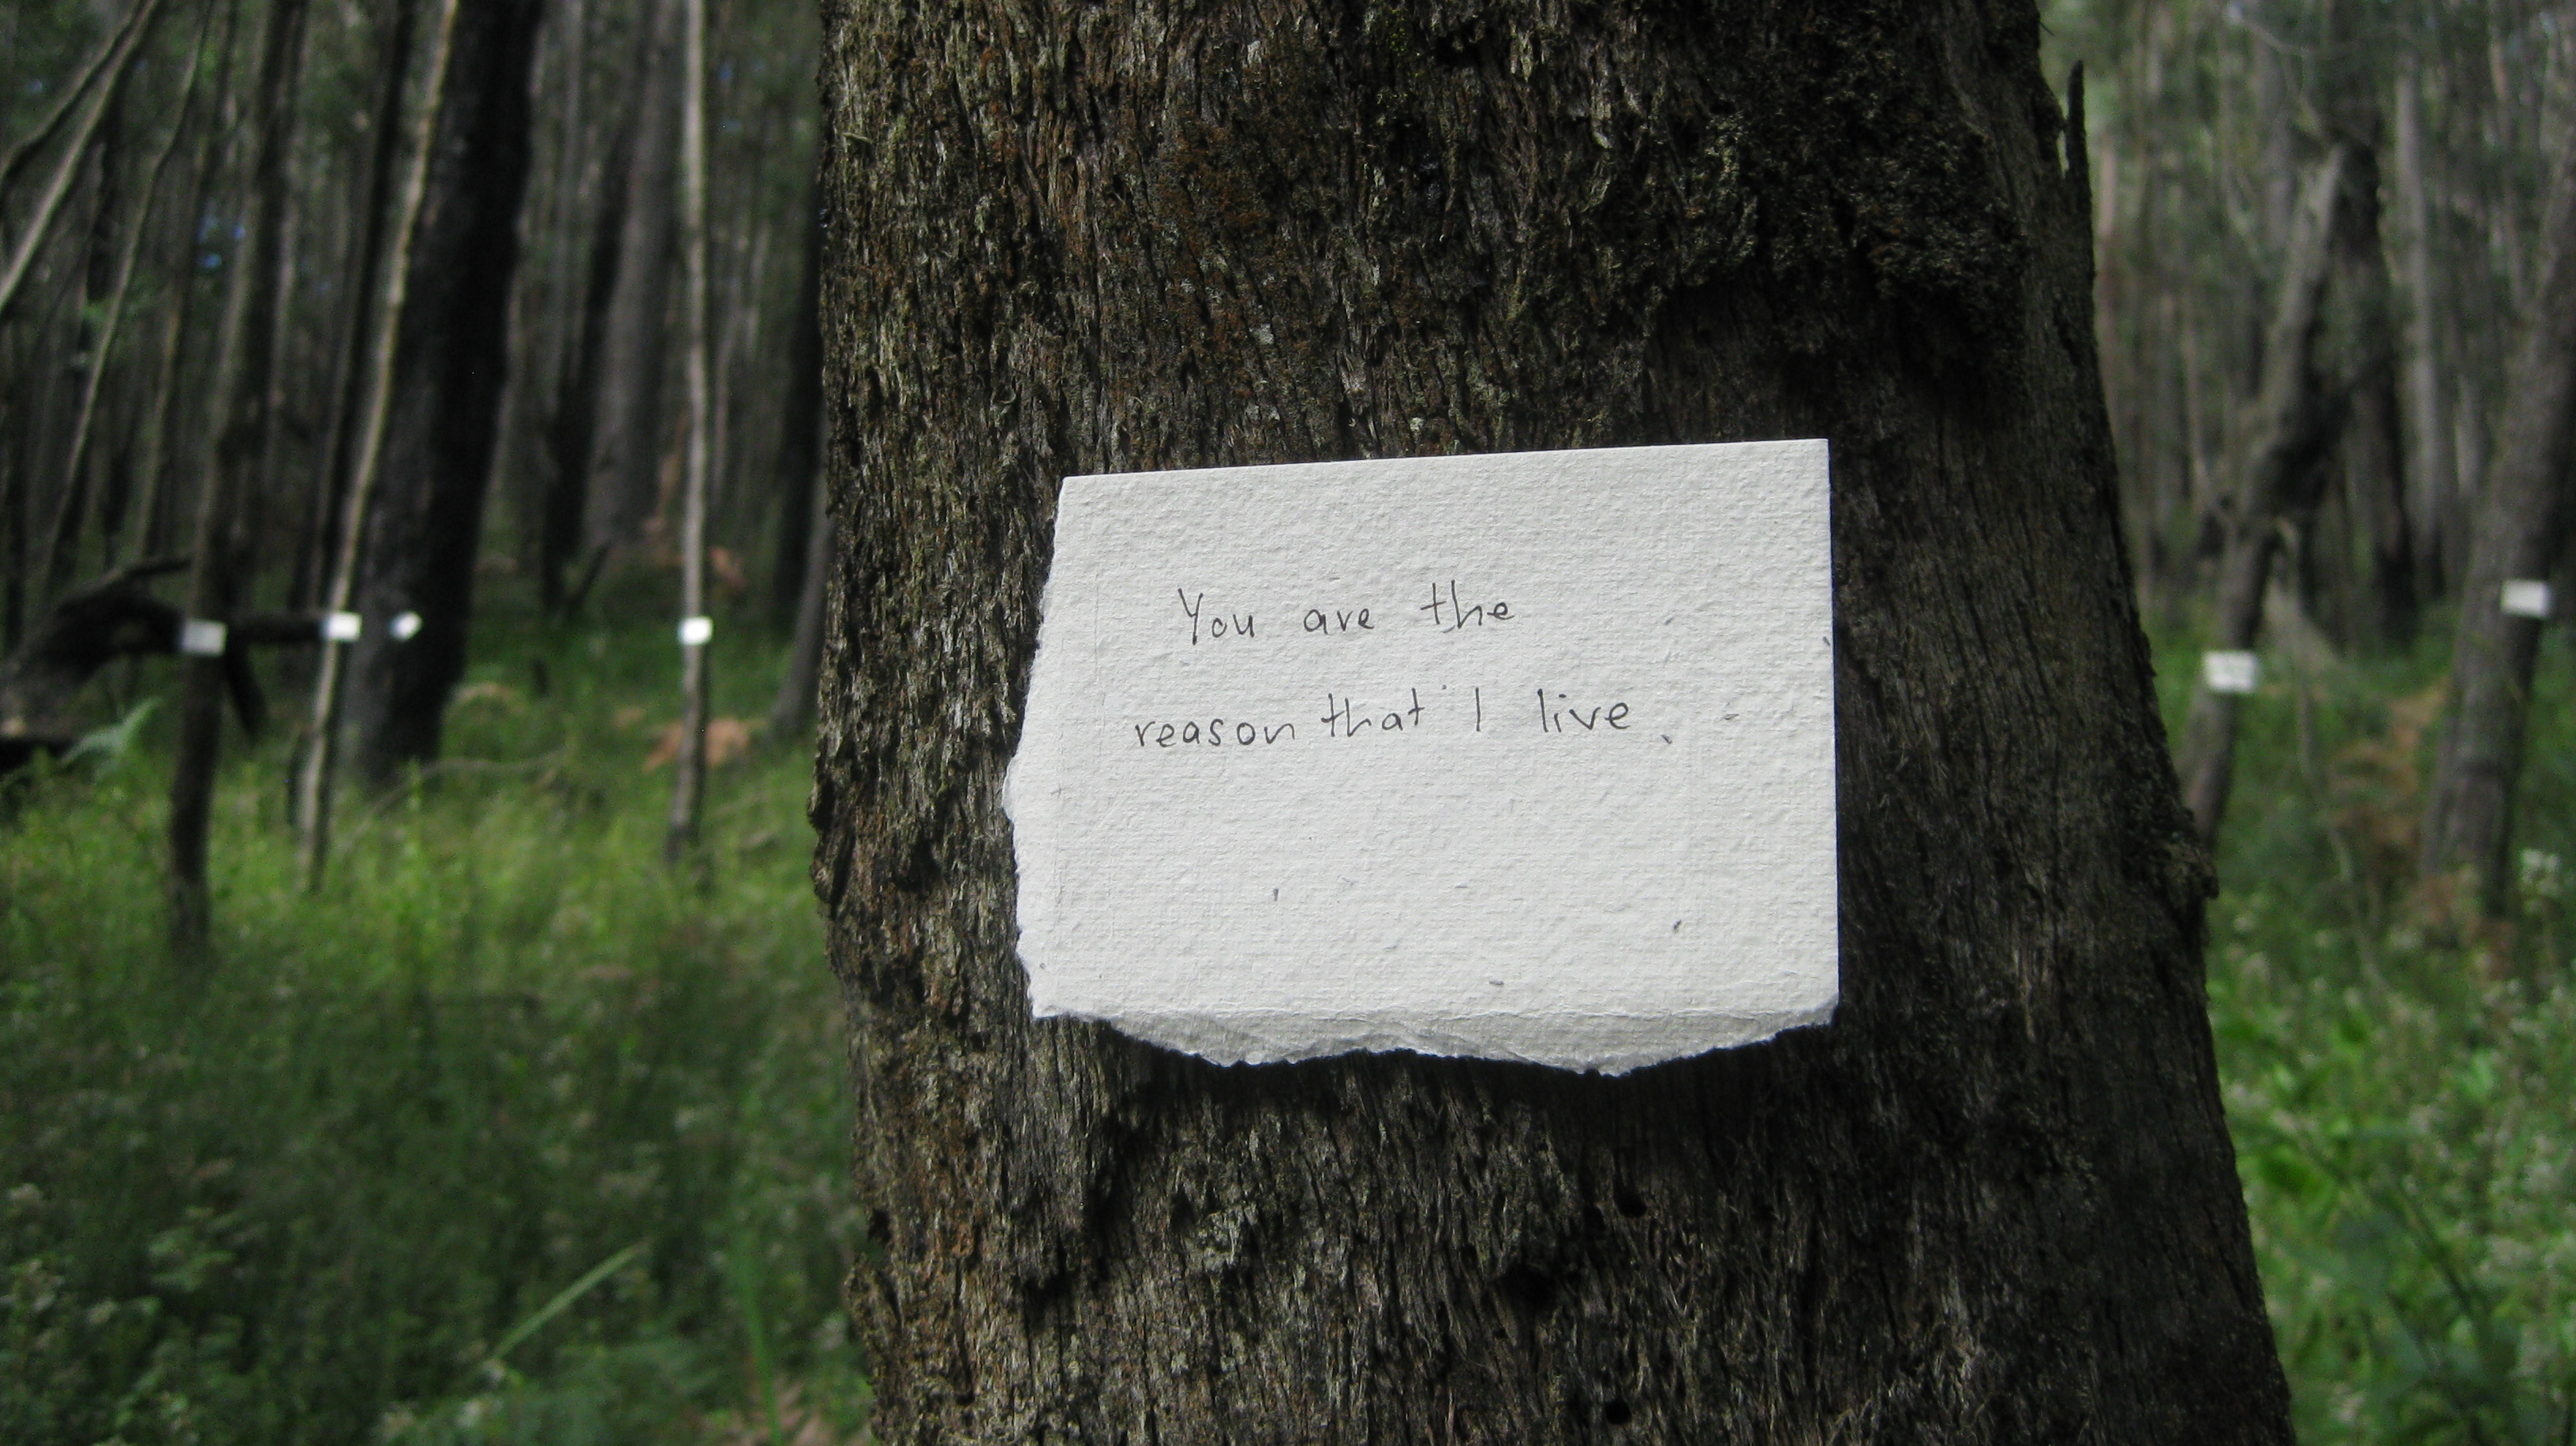 You are the
reason that I live